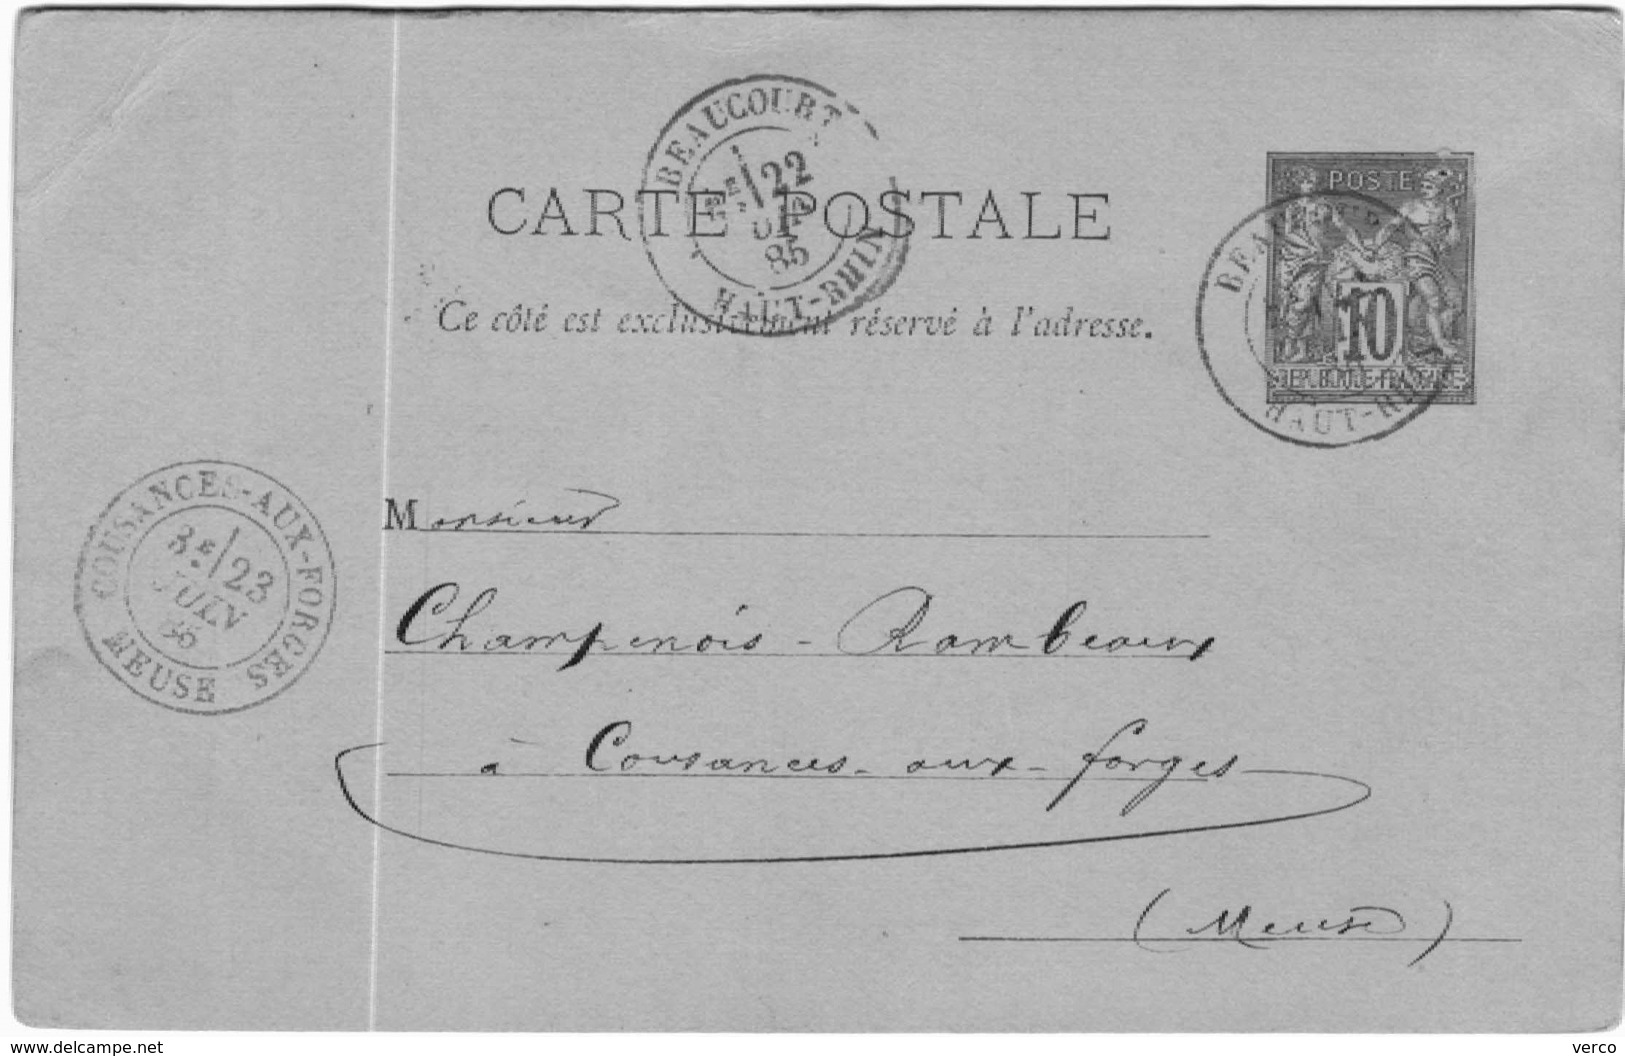 BEAUCOURT
22
85
HAUT-RHIN
CARTE POSTALE
Ce côté est exclusivement réservé à l'adresse.
POSTE
10
REPUBLIQUE FRANÇAISE
HAUT-RHIN
COUSANCES-AUX-FORGES
3E/23
JUIN
85
MEUSE
Monsieur
Champenois - Rambeaux
à Cousances-aux-forges
(Meuse)
www.delcampe.net
verco